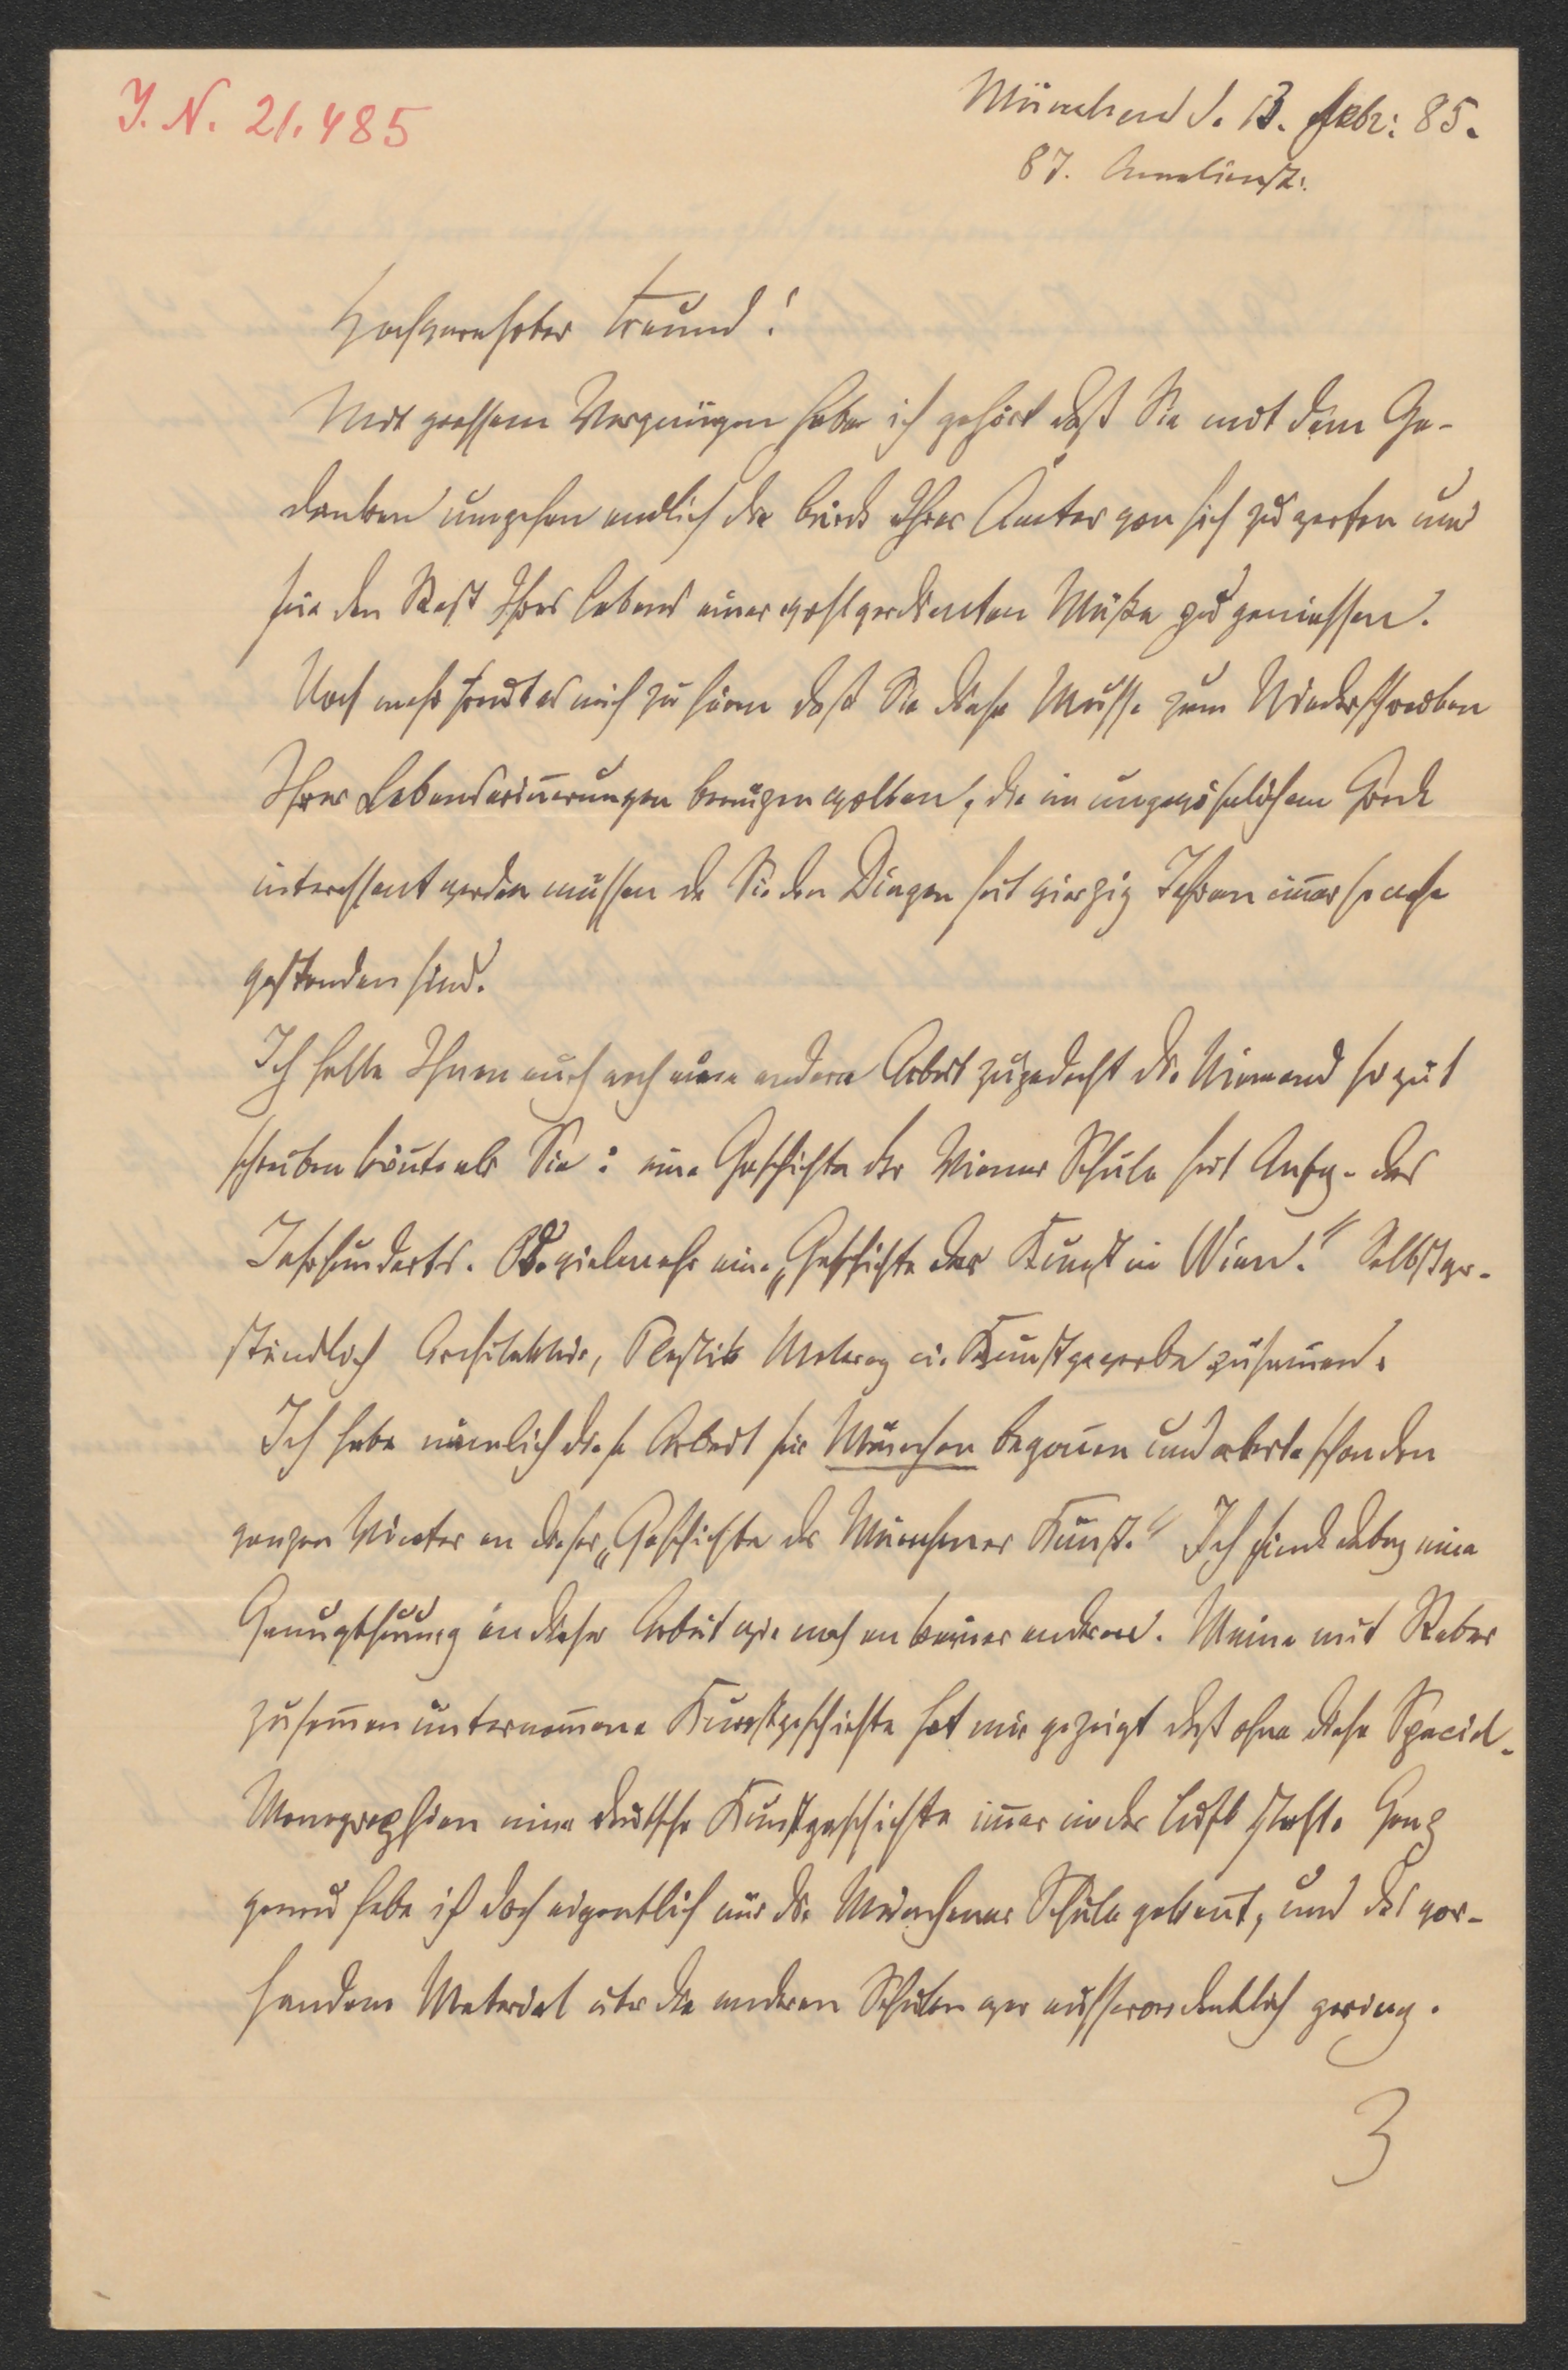 J. N. 21.485
München d. 13. Febr: 85.
87. Amalienstr.
Hochverehrter Freund!
Mit grossem Vergnügen habe ich gehört daß Sie mit dem Ge-
danken umgehen endlich die Bürde Ihres Amtes von sich zu werfen und
für den Rest Ihres Lebens einer wohlverdienten Muße zu geniessen.
Noch mehr freut es mich zu hören daß Sie diese Musse zum Niederschreiben
Ihrer Lebenserinerungen benuzen wollen, die im ungewöhnlichem Grade
interessant werden müssen da Sie den Dingen seit vierzig Jahren imer so nahe
gestanden sind.
Ich hätte Ihnen auch noch eine andere Arbeit zugedacht die Niemand so gut
schreiben könte als Sie: eine Geschichte der Wiener Schule seit Anfg. des
Jahrhunderts. Od. vielmehr eine „Geschichte der Kunst in Wien." Selbstver-
ständlich Architektur, Plastik Malerey u. Kunstgewerbe zusamen.
Ich habe nämlich diese Arbeit für München begonen und arbeite schon den
ganzen Winter an dieser „Geschichte der Münchner Kunst." Ich finde dabey eine
Genugthuung in dieser Arbeit wie noch an keiner anderen. Meine mit Reber
zusamen unternomene Kunstgeschichte hat mir gezeigt daß ohne diese Special-
Monographien eine deutsche Kunstgeschichte imer in der Luft steht. Ganz
genau habe ich doch eigentlich nur die Münchener Schule gekant, und das vor-
handene Material über die anderen Schulen war ausserordentlich gering.
3